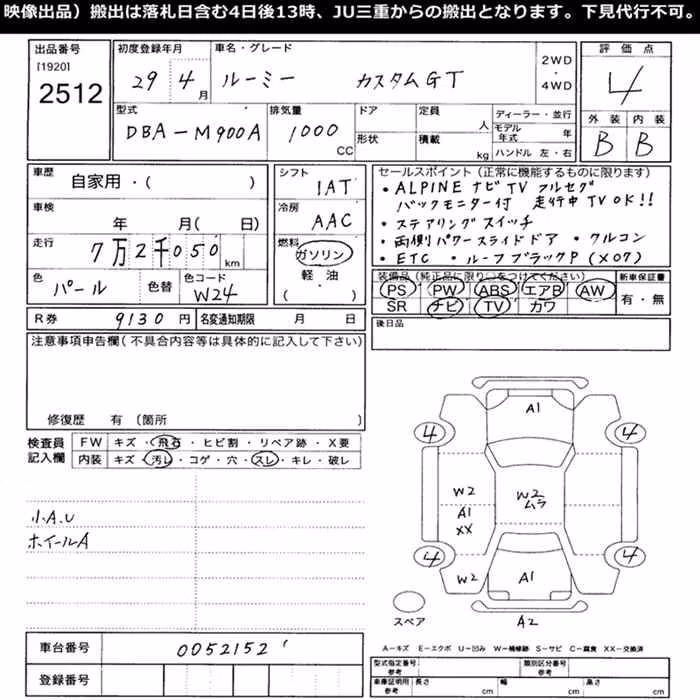 映像出品）搬出は落札日含む4日後13時、JU三重からの搬出となります。下見代行不可。
出品番号
[1920]
2512
初度登録年月
29 4 月
車名・グレード
ルーミー カスタムGT
2WD
・
4WD
評価点
4
外装 内装
B B
型式
DBA-M900A
排気量
1000
CC
ドア
形状
定員
人
積載
kg
ディーラー・並行
モデル年式 年
ハンドル 左・右
車歴
自家用・( )
車検
年 月( 日)
走行
7万2千050 km
色
パール
色替
色コード
W24
シフト
1AT
冷房
AAC
燃料
ガソリン
軽・油
( )
セールスポイント（正常に機能するものに限ります）
・ALPINE ナビ TV フルセグ
バックモニター付 走行中 TV OK!!
・ステアリングスイッチ
・両側パワースライドドア ・クルコン
・ETC ・ルーフブラックP (X07)
装備品（純正品に限り○をつけてください）
PS PW ABS エアB AW
SR ナビ TV カワ
新車保証書
有・無
後日品
R券 9130 円 名変通知期限 月 日
注意事項申告欄（不具合内容等は具体的に記入して下さい）
修復歴 有 〔箇所 〕
検査員
記入欄
FW キズ・飛石・ヒビ割・リペア跡・X要
内装 キズ・汚レ・コゲ・穴・スレ・キレ・破レ
小A.U
ホイールA
A1
4 4
W2 W2
ムラ
A1
XX
4 4
W2 A1
スペア A2
A－キズ E－エクボ U－凹み W－補修跡 S－サビ C－腐食 XX－交換済
車台番号 0052152
登録番号
型式指定番号 参考 類別区分番号 参考
車庫証明用 参考 長さ cm 幅 cm 高さ cm